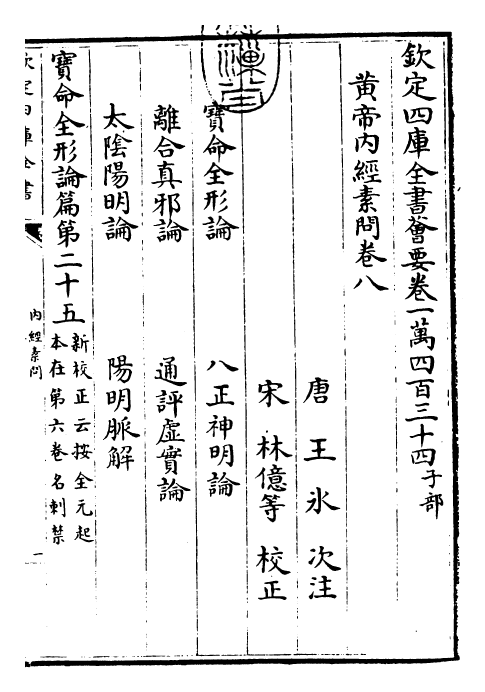 欽定四庫全書薈要卷一萬四百三十四子部
黄帝内經素問卷八
唐 王氷 次注
宋 林億等 校正
寶命全形論 八正神明論
離合真邪論 通評虚實論
太陰陽明論 陽明脈解
寶命全形論篇第二十五
新校正云按全元起
本在第六卷名刺禁
欽定四庫全書
内經素問
一